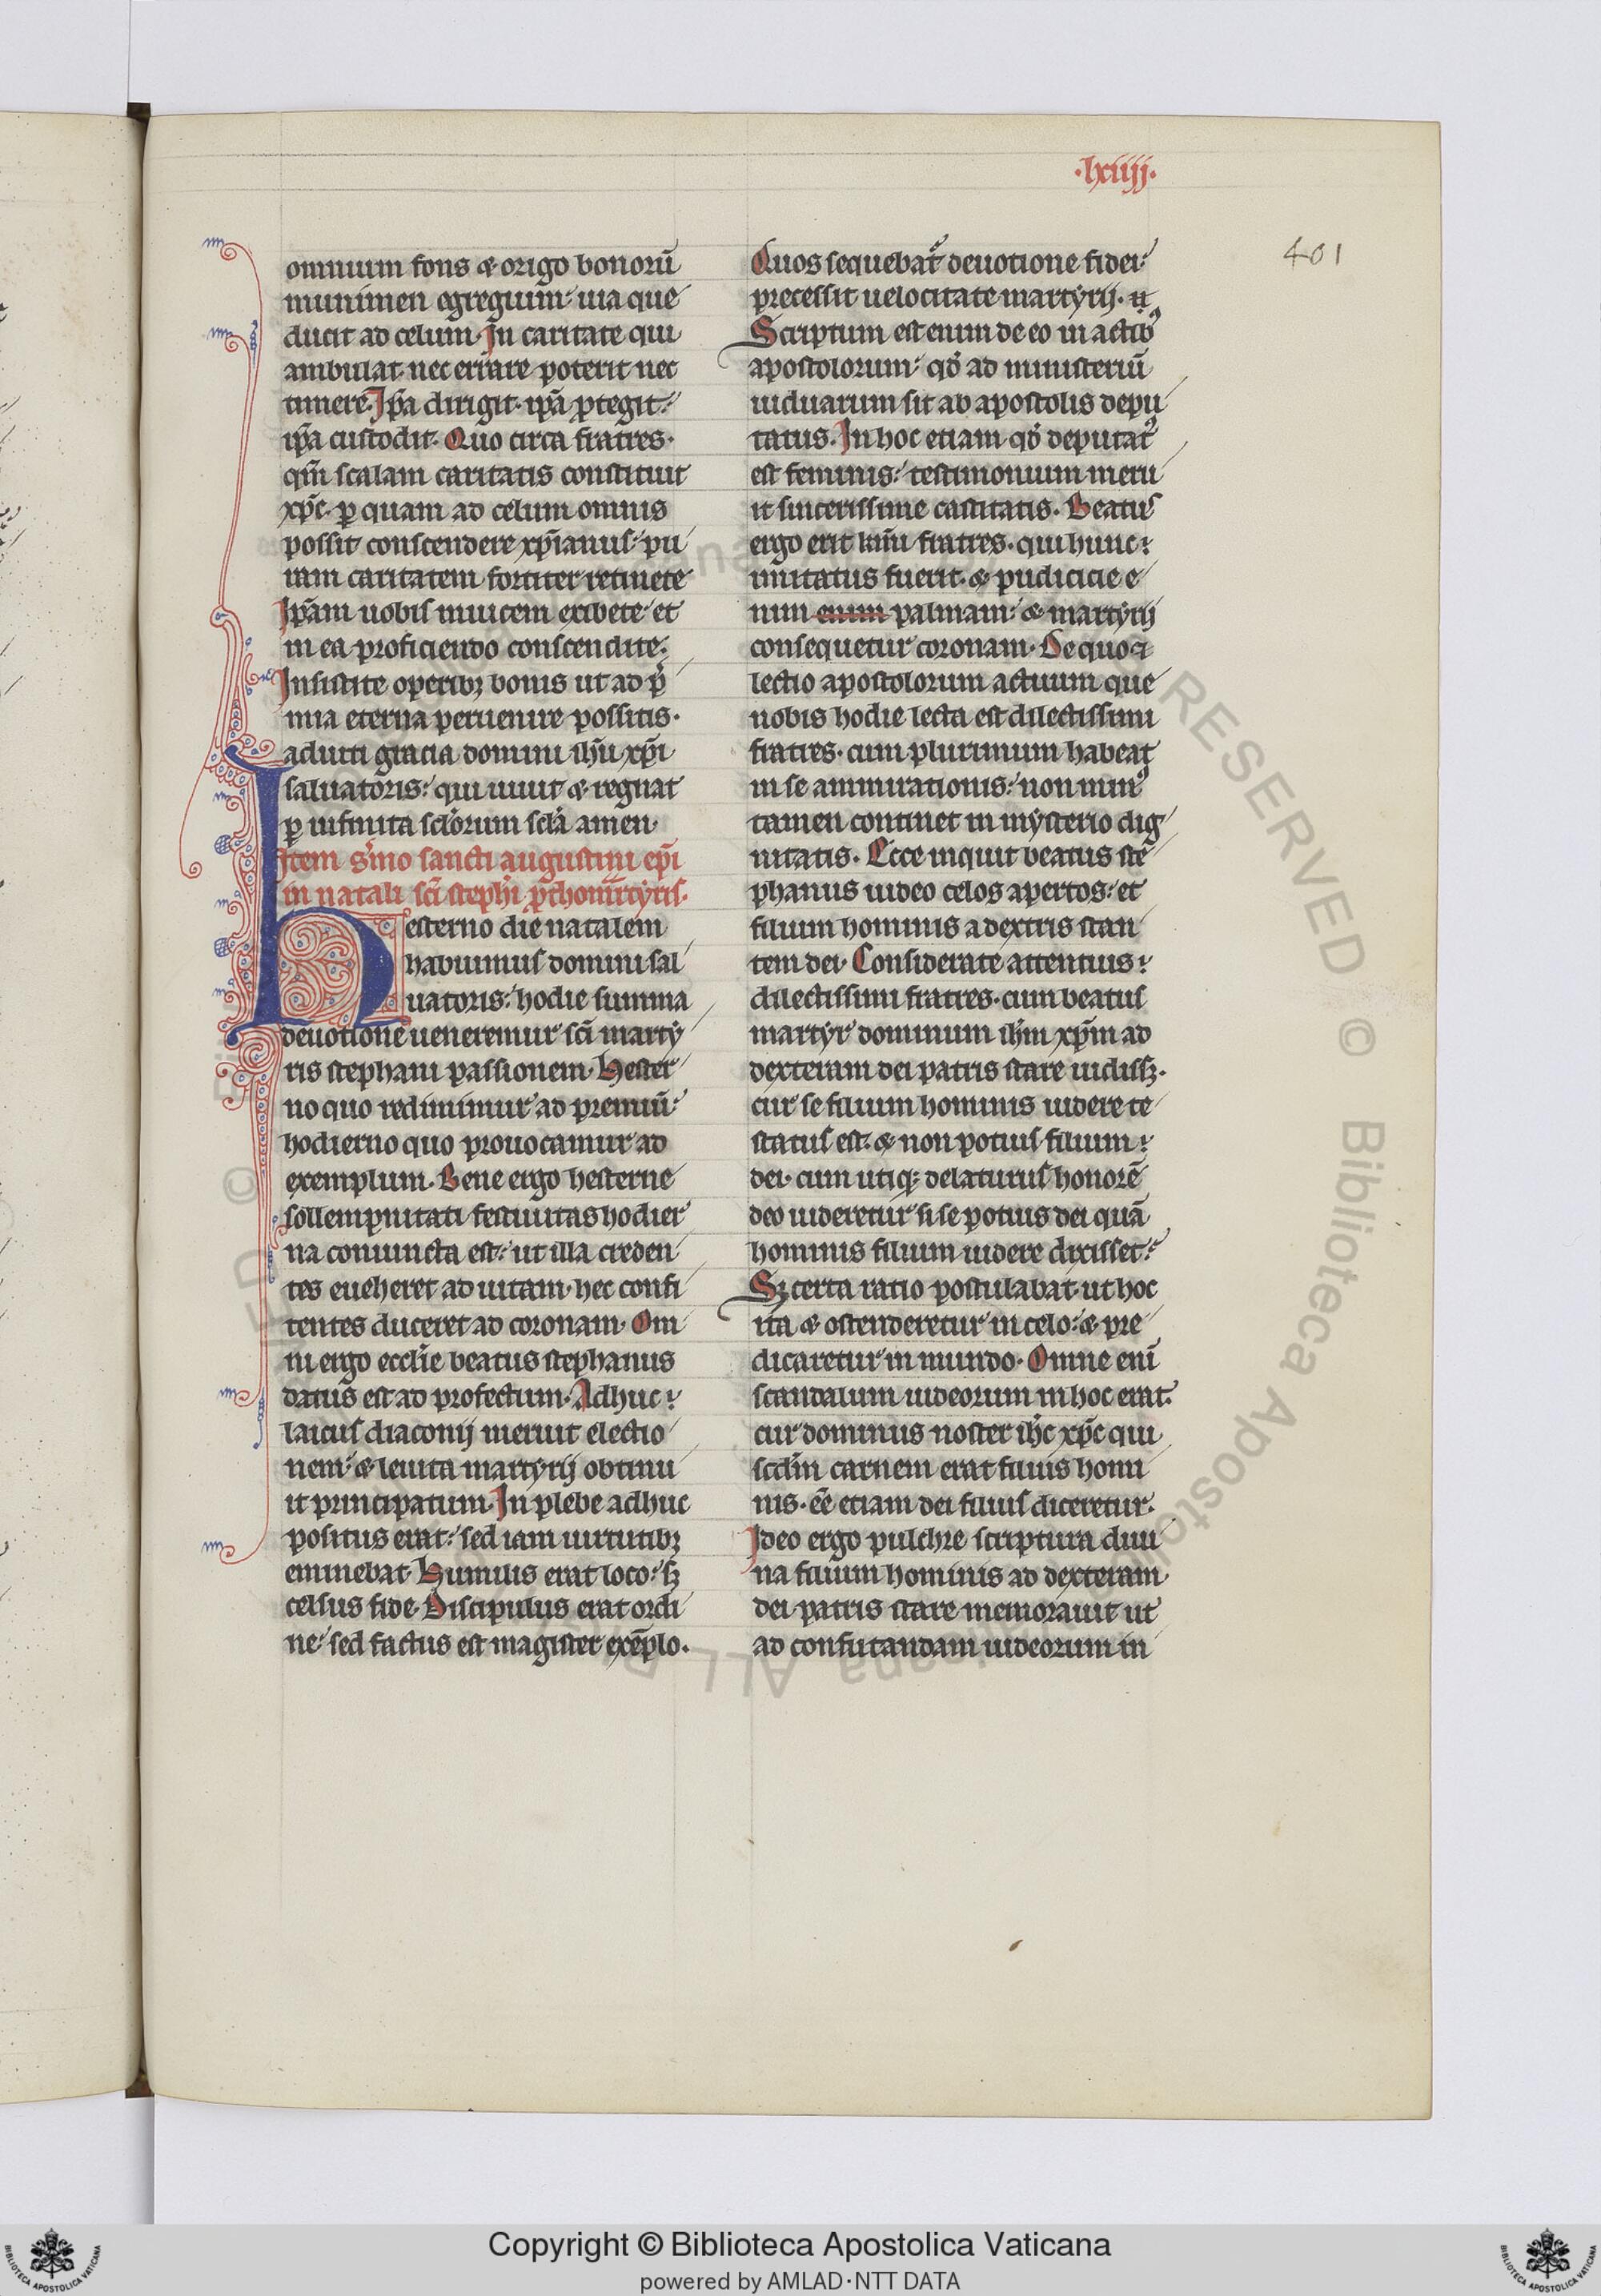 ·lxiiij·
401
omnium fons & origo bonorū
munimen egregium: uia que
ducit ad celum. In caritate qui
ambulat. nec errare poterit nec
timere. Ip̄a dirigit. ip̄a ꝓtegit:
ip̄a custodit. Quo circa fratres.
qm̄ scalam caritatis constituit
xp̄c. ꝑ quam ad celum omnis
possit conscendere xp̄ianus: pu
ram caritatem fortiter retinete
Ip̄am uobis inuicem exibete: et
in ea proficiendo conscendite:
Insistite operibꝫ bonis ut ad p̄
mia eterna peruenire possitis.
adiuti gracia domini ih̄u xp̄i
saluatoris: qui uiuit & regnat
ꝑ infinita sc̄lorum sc̄la amen.
Item s̄mo sancti augustini ep̄i
in natali sc̄i steph̄i ꝓthom̄rtyris.
Hesterno die natalem
habuimus domini sal
uatoris: hodie summa
deuotione ueneremur sc̄i marty
ris stephani passionem. Hester
no quo redimimur ad premiū:
hodierno quo prouocamur ad
exemplum. Bene ergo hesterne
sollempnitati festiuitas hodier
na coniuncta est: ut illa creden
tes eueheret ad uitam. hec confi
tentes duceret ad coronam. Om
ni ergo eccl̄ie beatus stephanus
datus est ad profectum. Adhuc
laicus diaconij meruit electio
nem: & leuita martyrij obtinu
it principatum. In plebe adhuc
positus erat: sed iam uirtutibꝫ
eminebat. Humilis erat loco: sꝫ
celsus fide. Discipulus erat ordi
ne: sed factus est magister exēplo.
Quos sequebat᷑ deuotione fidei:
precessit uelocitate martyrij.
Scriptum est enim de eo in actibꝰ
apostolorum: qd̄ ad ministeriū
uiduarum sit ab apostolis depu
tatus. In hoc etiam qd̄ deputatꝰ
est feminis: testimonium meru
it sincerissime castitatis. Beatus
ergo erit kr̄mi fratres. qui hunc
imitatus fuerit. & pudicicie e
nim enim palmam: & martyrij
consequetur coronam. De quo
lectio apostolorum actuum que
nobis hodie lecta est dilectissimi
fratres. cum plurimum habeat
in se ammirationis: non minꝰ
tamen continet in mysterio dig
nitatis. Ecce inquit beatus ste
phanus uideo celos apertos: et
filium hominis a dextris stan
tem dei. Considerate attentius
dilectissimi fratres. cum beatus
martyr dominum ih̄m xp̄m ad
dexteram dei patris stare uidissꝫ.
cur se filium hominis uidere te
status est. & non potius filium
dei. cum utiqꝫ delaturus honorē
deo uideretur si se potius dei quā
hominis filium uidere dixisset:
Sꝫ certa ratio postulabat. ut hoc
ita & ostenderetur in celo: & pre
dicaretur in mundo. Omne eni̅
scandalum iudeorum in hoc erat.
cur dominus noster ih̄c xp̄c qui
scd̄m carnem erat filius homi
nis. eē etiam dei filius diceretur.
Ideo ergo pulchre scriptura diui
na filium hominis ad dexteram
dei patris stare memorauit ut
ad confutandam iudeorum in
Copyright © Biblioteca Apostolica Vaticana
powered by AMLAD·NTT DATA